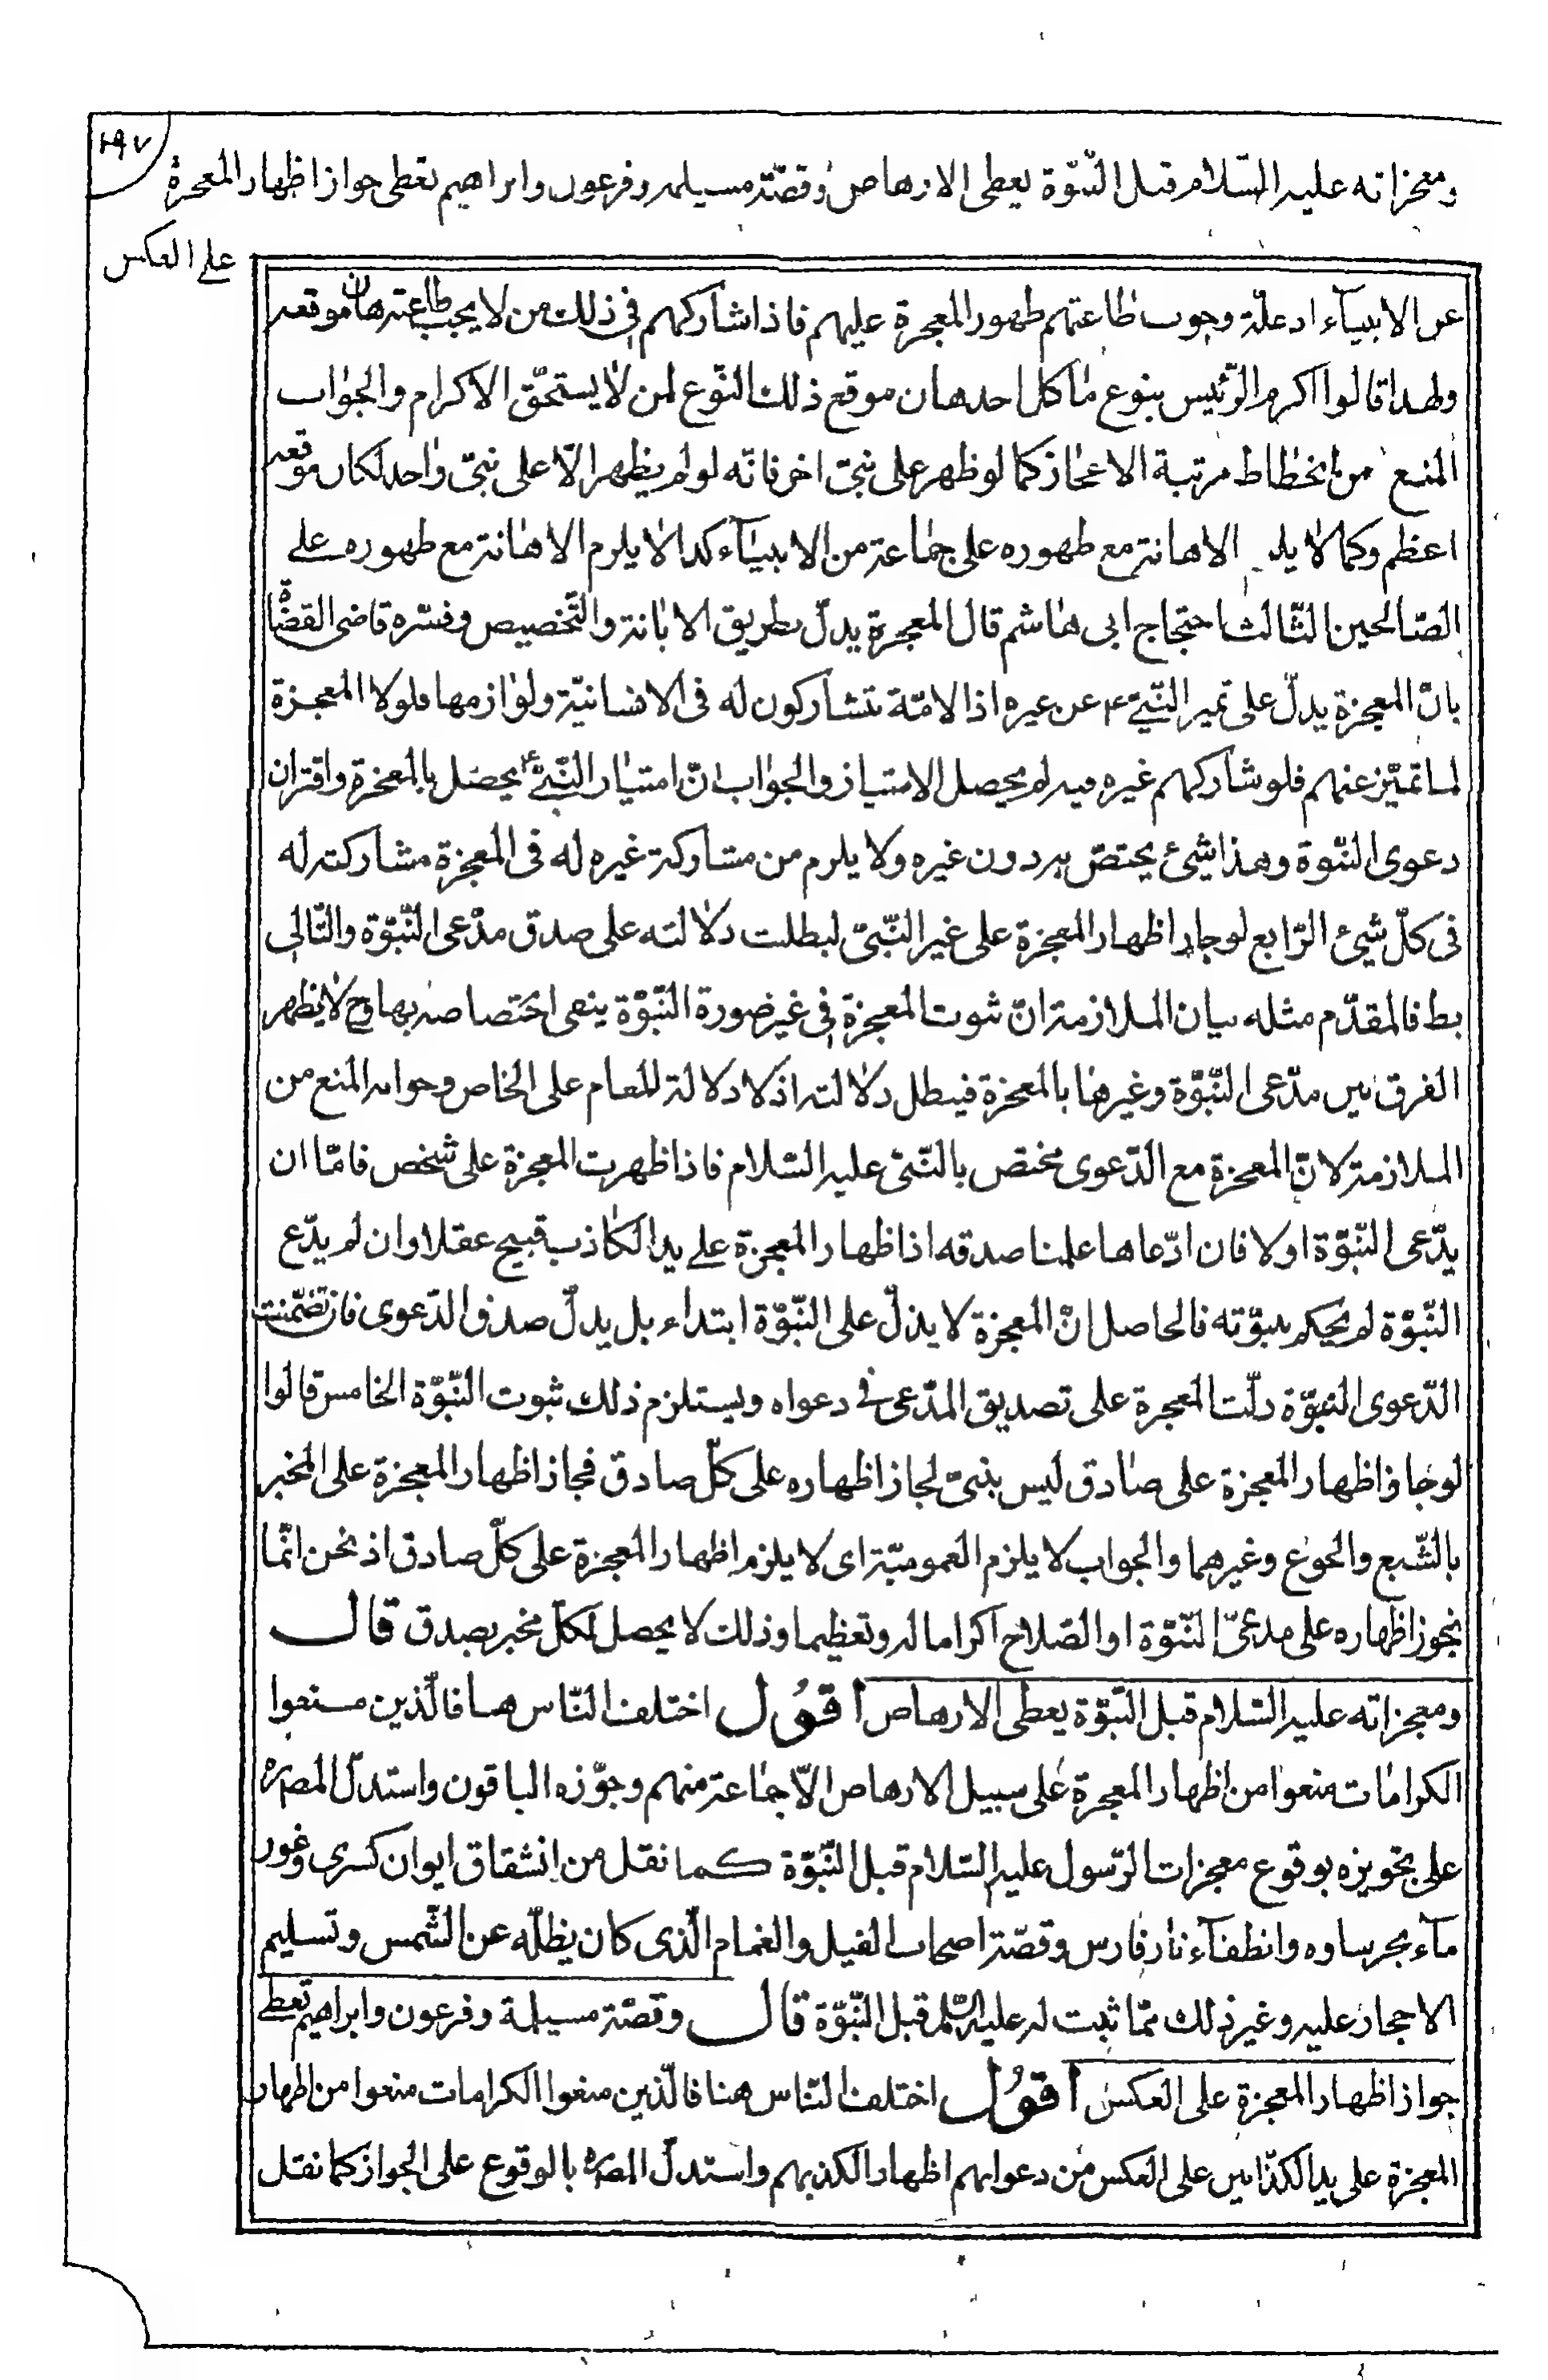 ١٩٧
ومعجزاته عليه السّلام قبل النّبوّة يعطى الارهاص وقصّة مسيلمه وفرعون وابراهيم تعطى جواز اظهار المعجزة
على العكس
عن الانبيآء اذ علّة وجوب طاعتهم ظهور المعجزة عليهم فاذا شاركهم فى ذلك من لا يجب طاعته هان موقعه
ولهذا قالوا اكرم الرّئيس بنوع ما كل احد هان موقع ذلك النّوع لمن لا يستحقّ الاكرام والجواب
المنع من انحطاط مرتبة الاعجاز كما لو ظهر على نبىّ اخر فانّه لو لم يظهر الّا على نبىّ واحد لكان موقعه
اعظم وكما لا الاهانة مع ظهوره على جماعة من الانبيآء كذا لا يلزم الاهانة مع ظهوره على
الصّالحين الثّالث احتجاج ابى هاشم قال المعجزة يدلّ بطريق الابانة والتّخصيص وفسّره قاضى القضاة
بانّ المعجزة يدلّ على تميز النّبىّ ع عن غيره اذ الامّة تتشاركون له فى الانسانيّة ولوازمها فلولا المعجزة
لما تميّز عنهم فلو شاركهم غيره فيه لم يحصل الامتياز والجواب انّ امتياز النّبىّ ع يحصل بالمعجزة واقتران
دعوى النّبوة وهذا شىء يختصّ به دون غيره ولا يلزم من مشاركة غيره له فى المعجزة مشاركته له
فى كلّ شىء الرّابع لو جاز اظهار المعجزة على غير النّبىّ لبطلت دلالته على صدق مدّعى النّبوّة والتّالى
بط فالمقدّم مثله بيان الملازمة انّ ثبوت المعجزة فى غير صورة النّبوّة ينفى اختصاصه بها وح لا يظهر
الفرق بين مدّعى النّبوّة وغيرها بالمعجزة فيبطل دلالته اذ لا دلالة للعام على الخاص وجوابه المنع من
الملازمة لانّ المعجزة مع الدّعوى مختص بالنّبىّ عليه السّلام فاذا ظهرت المعجزة على شخص فامّا ان
يدّعى النّبوّة اولا فان ادّعاها علمنا صدقه اذ اظهار المعجزة على يد الكاذب قبيح عقلا وان لم يدّع
النّبوّة لم يحكم بنبوّته فالحاصل انّ المعجزة لا يدلّ على النّبوّة ابتداء بل يدلّ صدق الدّعوى فان تضمّنت
الدّعوى النّبوّة دلّت المعجزة على تصديق المدّعى فى دعواه ويستلزم ذلك ثبوت النّبوّة الخامس قالوا
لو جاز اظهار المعجزة على صادق ليس بنبىّ لجاز اظهاره على كلّ صادق فجاز اظهار المعجزة على المخبر
بالشّبع والجوع وغيرهما والجواب لا يلزم العموميّة اى لا يلزم اظهار المعجزة على كلّ صادق اذ نحن انّما
نجوز اظهاره على مدعىّ النّبوّة او الصّلاح اكراما له وتعظيما وذلك لا يحصل لكلّ مخبر بصدق قال
ومعجزاته عليه السّلام قبل النّبوّة يعطى الارهاص اقول اختلف النّاس هنا فالّذين منعوا
الكرامات منعوا من اظهار المعجزة على سبيل الارهاص الّا جماعة منهم وجوّزه الباقون واستدلّ المصره
على تجويزه بوقوع معجزات الرّسول عليه السّلام قبل النّبوّة كما نقل من انشقاق ايوان كسرى وغور
مآء بحر ساوه وانطفآء نار فارس وقصّة اصحاب الفيل والغمام الّذى كان يظلّه عن الشّمس وتسليم
الاحجار عليه وغير ذلك ممّا ثبت له عليه السّلم قبل النّبوّة قال وقصّة مسيلمة وفرعون وابراهيم تعطى
جواز اظهار المعجزة على العكس اقول اختلف النّاس هنا فالّذين منعوا الكرامات منعوا من اظهار
المعجزة على يد الكذّابين على العكس من دعواهم اظهار الكذبهم واستدلّ المصره بالوقوع على الجواز كما نقل